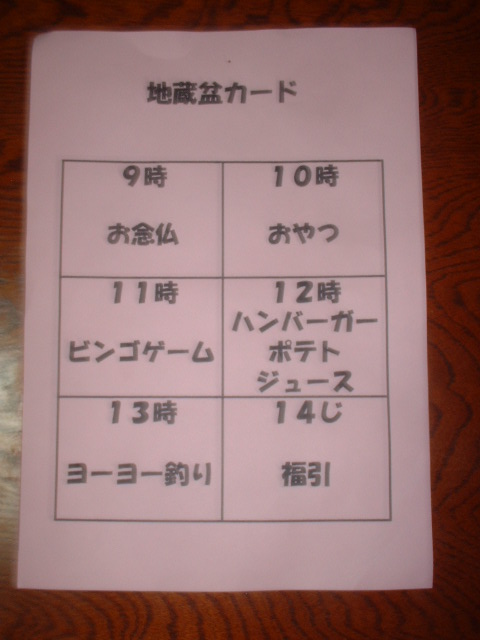 地蔵盆カード
9時
お念仏
10時
おやつ
11時
ビンゴゲーム
12時
ハンバーガー
ポテト
ジュース
13時
ヨーヨー釣り
14じ
福引